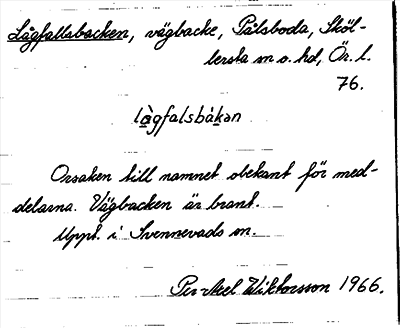 Lågfallsbacken, vägbacke, Pålsboda, Sköl-
lersta sn o. hd, Ör. l.
76.
lågfalsbàkən
Orsaken till namnet obekant för med-
delarna. Vägbacken är brant.
Uppt. i Svennevads sn.
Per-Axel Wiktorsson 1966.